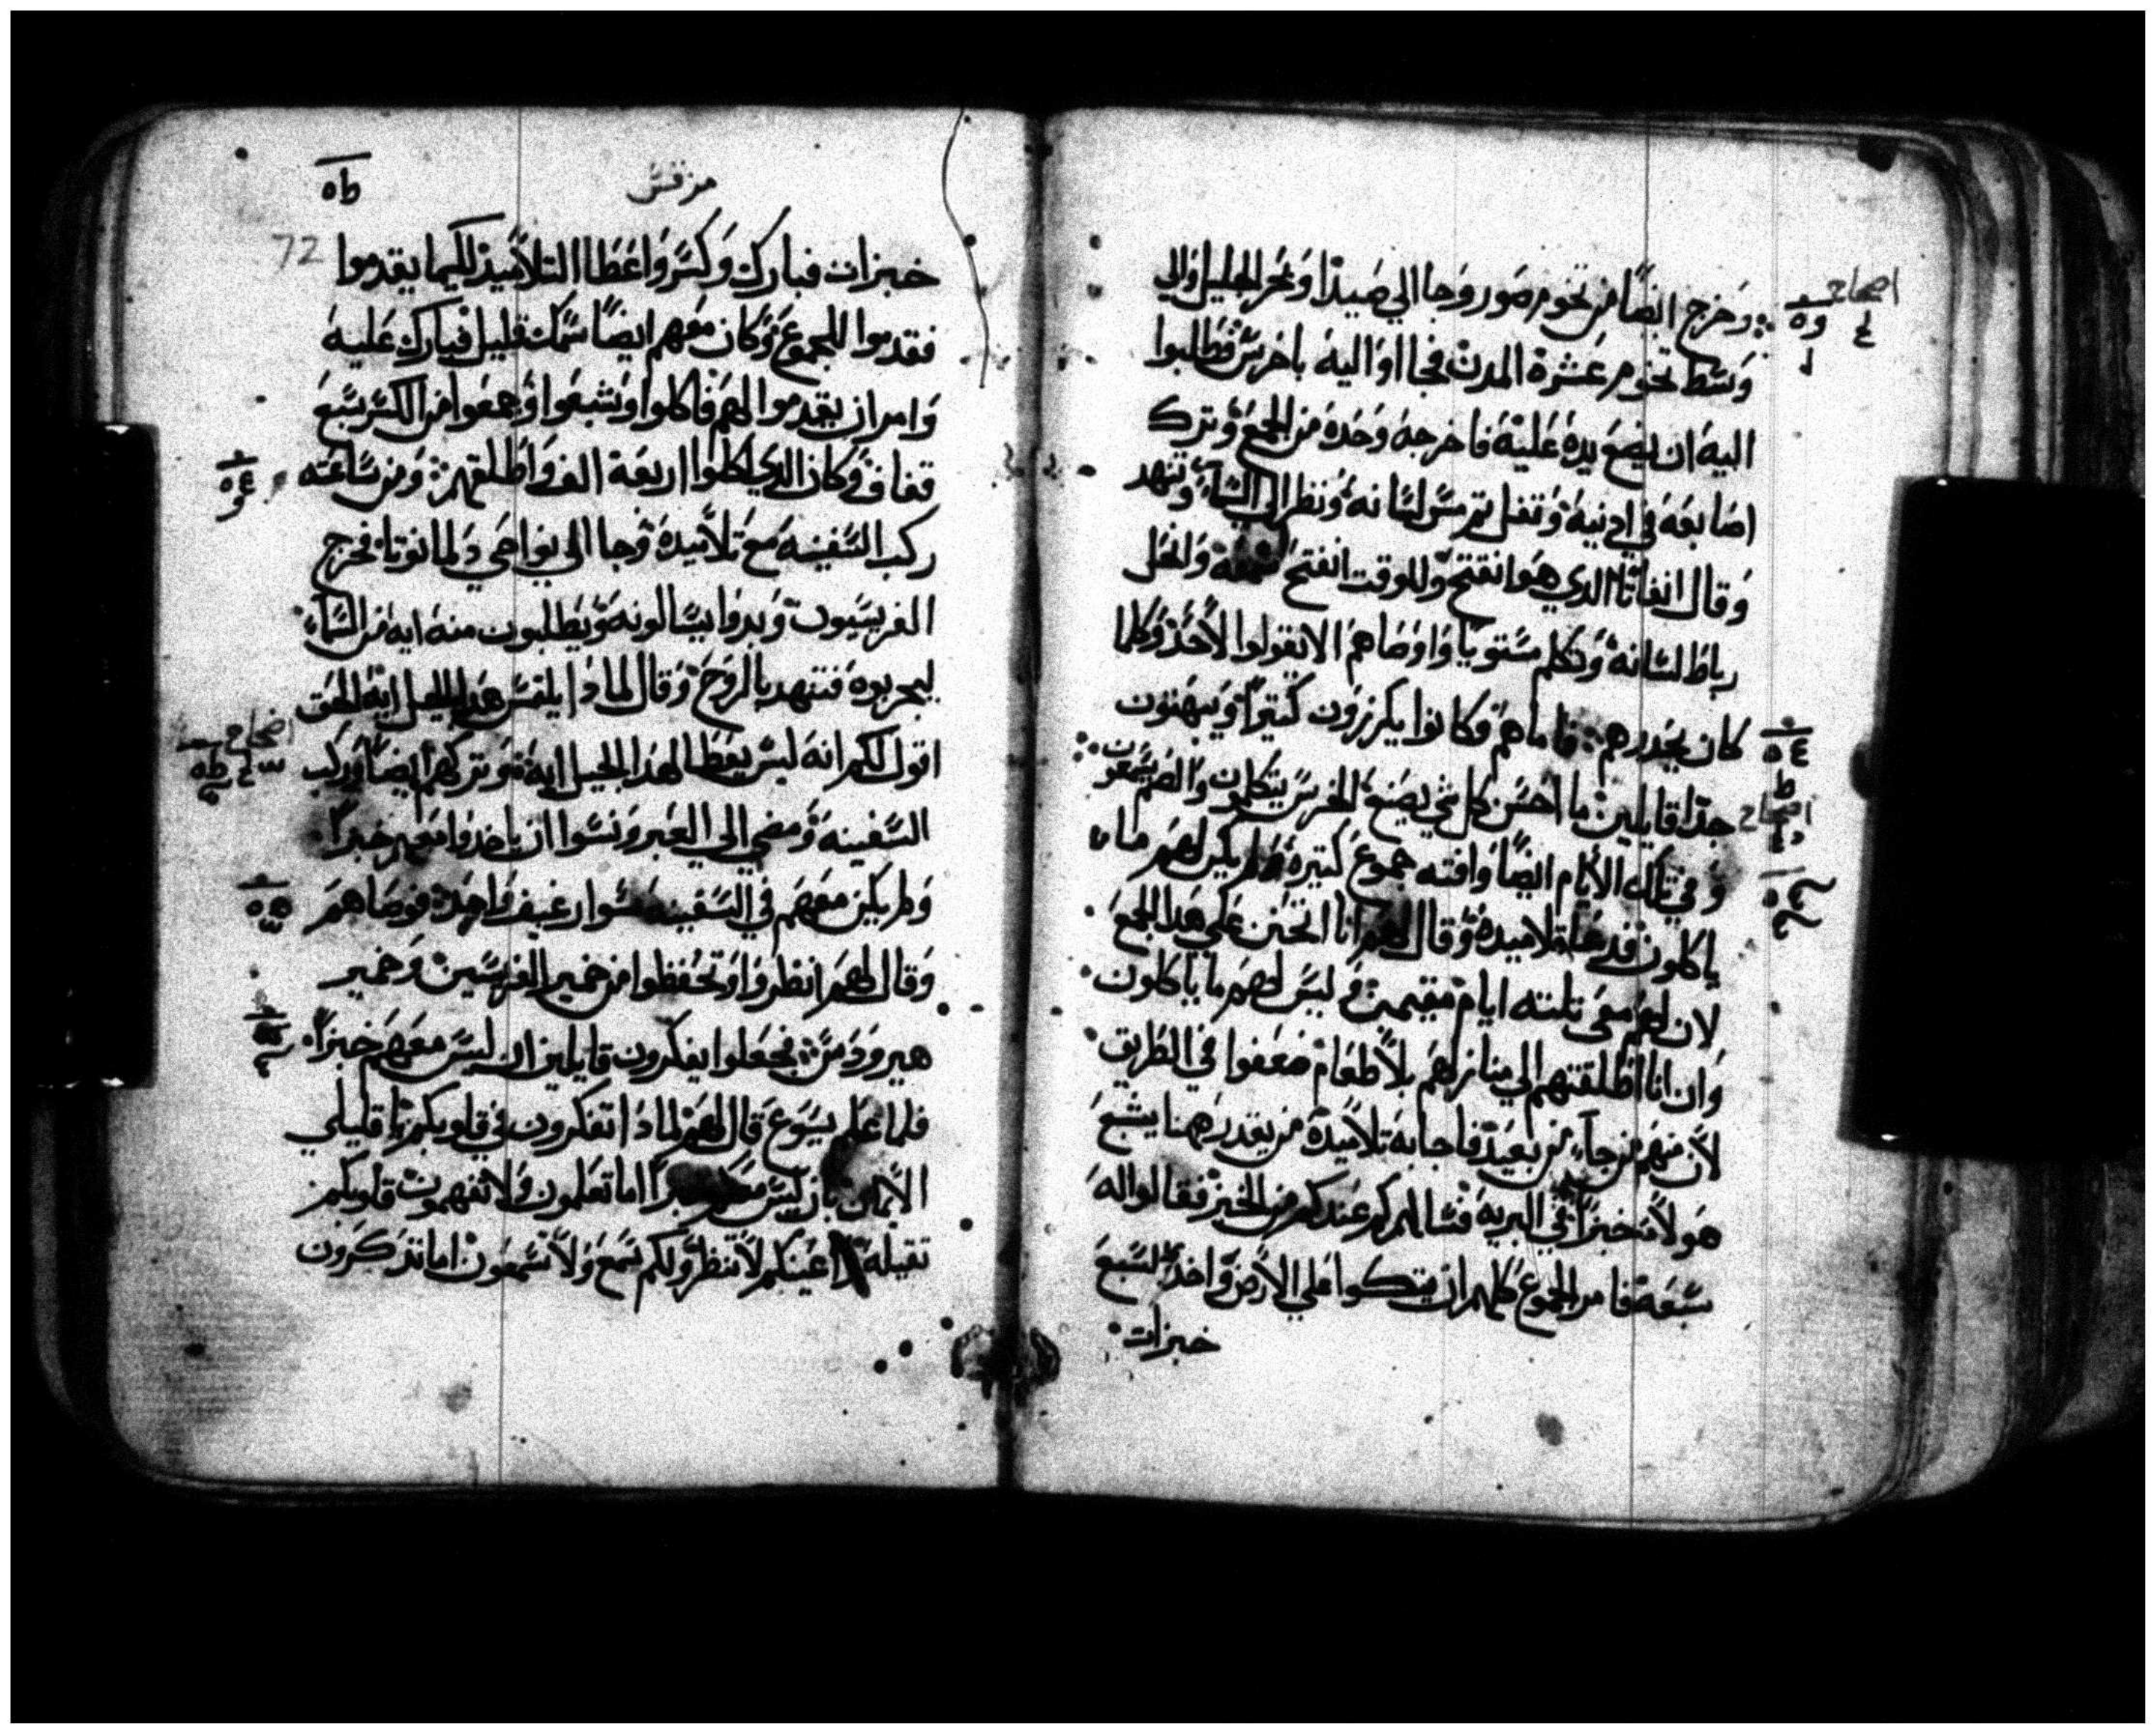 وخرج ايضًا من تخوم صور وجا الي صيدا وبحر الجليل والي
وسط تخوم عشرة المدن فجااوا اليه باخرس وطلبوا
اليه ان يضع يده عليه فاخرجه وحده من الجمع وترك
اصابعه في ادنيه وتفل تم مس لسانه ونظر الي السماء وتنهد
وقال انفاتا الدي هو انفتح وللوقت انفتح وانحل
رباط لسانه وتكلم مستويًا واوصاهم الا يقولوا لاحد وكلما
كان يحدرهم فاماهم فكانوا يكرزون كتيرًا ويبهتون
جدًا قايلين ما احسن كل شي يصنع الخرس يتكلمون والصم يسمعون
و في تلك الايام ايضًا وافته جموع كتيرة ولم يكن لهم ما
ياكلون فدعا تلاميده وقال لهم انا اتحنن علي هدا الجمع
لان لهم معي تلتة ايام مقيمين و ليس لهم ما ياكلون
وان انا اطلقتهم الي منازلهم بلا طعام ضعفوا في الطريق
لان منهم من جاء من بعيد فاجابه تلاميده من يقدر هاهنا يشبع
هولاء خبزًا في البرية فسالهم كم عندكم من الخبز فقالوا له
سبعة فامر الجموع كلهم ان يتكوا علي الارض واخد السبع
خبزات
مرقس
ط٥
72
خبزات فبارك وكسر واعطا التلاميد لكيما يقدموا
فقدموا للجموع وكان معهم ايضًا سمك قليل فبارك عليه
وامر ان يقدموا لهم فاكلوا وشبعوا وجمعوا من الكسر سبع
قفاف وكان الدي اكلوا اربعة الف واطلقهم ومن ساعته
ركب السفينه مع تلاميده وجا الي نواحي دلمانوتا فخرج
الفريسيون وبدوا يسالونه ويطلبون منه ايه من السماء
ليجربوه فتنهد بالروح وقال لمادا يلتمس هدا الجيل اية الحق
اقول لكم انه ليس يعطا لهدا الجيل ايه وتركهم ايضًا وركب
السفينه ومضي الي العبر ونسوا ان ياخدوا معهم خبزًا
ولم يكن معهم في السفينه سوا رغيف واحد فوصاهم
وقال لهم انظروا وتحفظوا من خمير الفريسين وخمير
هيرودس فجعلوا يفكرون قايلين ان ليس معهم خبزًا
فلما علم يسوع قال لهم لمادا تفكرون في قلوبكم يا قليلي
الايمان بان ليس معكم خبزًا اما تعلمون ولا تفهمون قلوبكم
تقيلة اعينكم لا تنظر ولكم سمع ولا تسمعون اما تدكرون